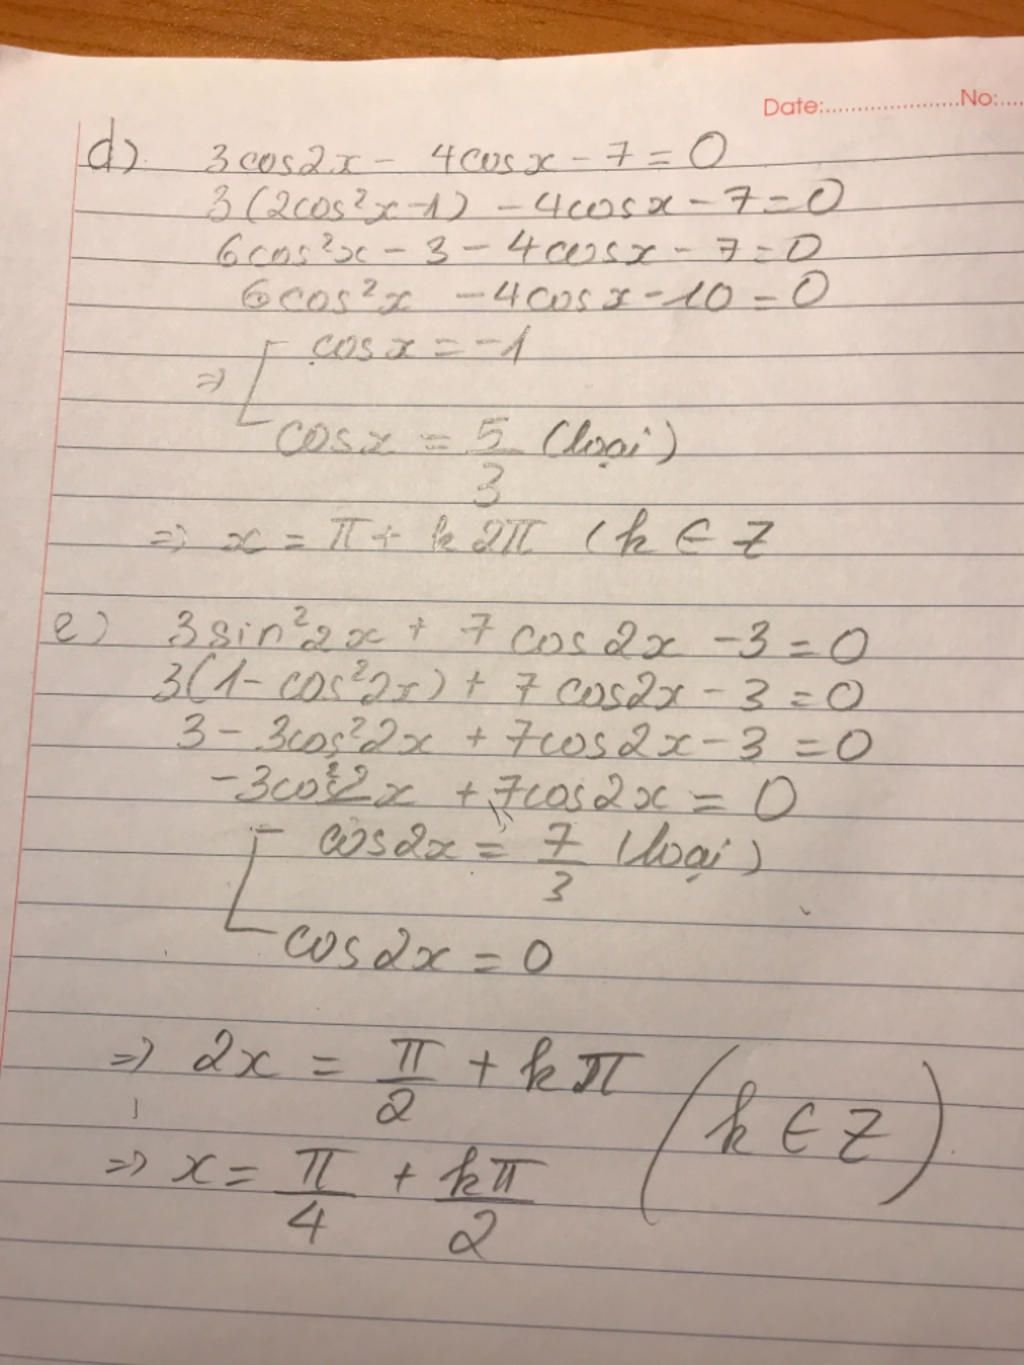 Date:....................No:....
d) 3cos2x - 4cosx - 7 = 0
3(2cos²x-1) - 4cosx - 7 = 0
6cos²x - 3 - 4cosx - 7 = 0
6cos²x - 4cosx - 10 = 0
⇒ [ cosx = -1
cosx = 5/3 (loại)
⇒ x = π + k2π (k ∈ Z
e) 3sin²2x + 7cos2x - 3 = 0
3(1 - cos²2x) + 7cos2x - 3 = 0
3 - 3cos²2x + 7cos2x - 3 = 0
-3cos²2x + 7cos2x = 0
[ cos2x = 7/3 (loại)
cos2x = 0
⇒ 2x = π/2 + kπ
(k ∈ Z)
⇒ x = π/4 + kπ/2